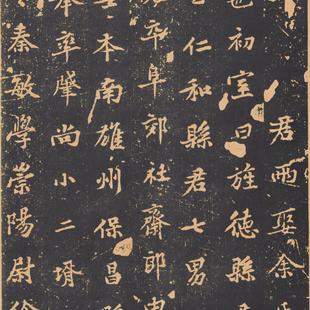 君兩娶余
也初室曰旌德縣
仁和縣君七男
卒阜郊社齋郎
本南雄州保昌
率肇尚小二壻
秦敏學崇陽尉